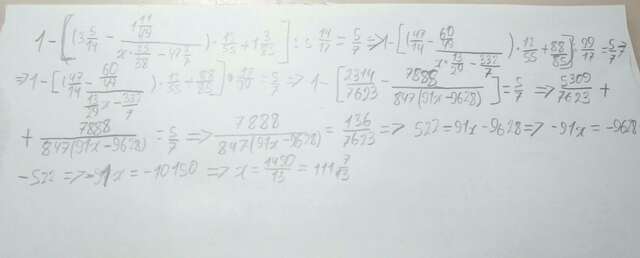 1 - [(3 5/14 - (1 11/49)/(x · 52/58 - 47 3/7)) · 12/55 + 1 3/85] : 5 14/17 = 5/7 => 1 - [(47/14 - (60/49)/(x · 13/29 - 332/7)) · 12/55 + 88/85] : 99/17 = 5/7 =>
=> 1 - [(47/14 - (60/49)/(13/29 x - 332/7)) · 12/55 + 88/85] · 17/99 = 5/7 => 1 - [2314/7623 - 7888/(847(91x - 9628))] = 5/7 => 5309/7623 +
+ 7888/(847(91x - 9628)) = 5/7 => 7888/(847(91x - 9628)) = 136/7623 => 522 = 91x - 9628 => -91x = -9628
- 522 => -91x = -10150 => x = 1450/13 = 111 7/13